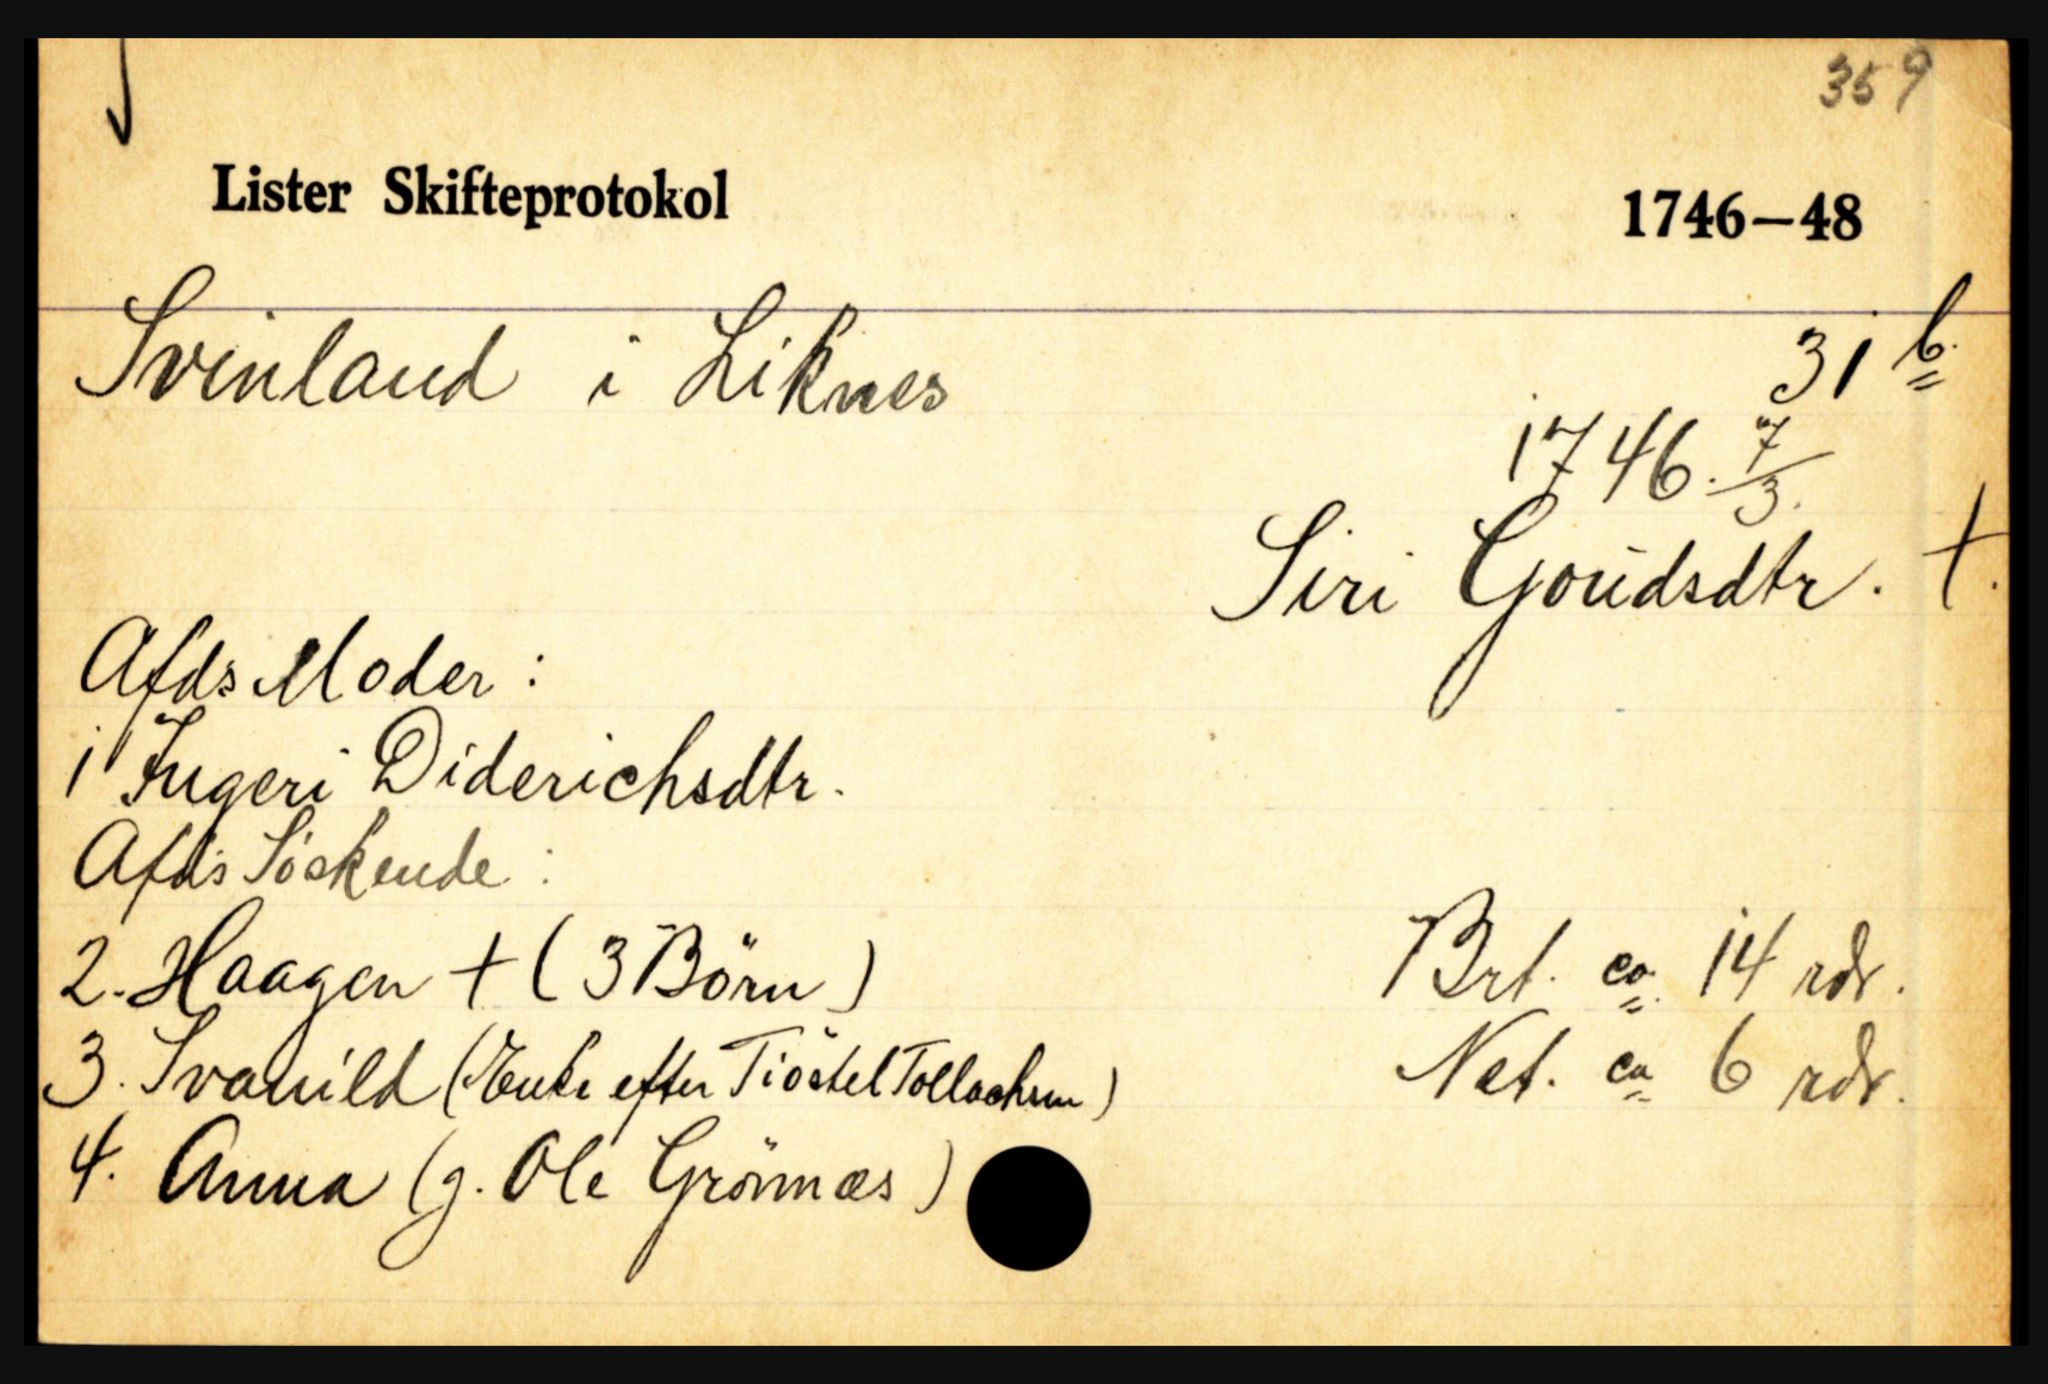 359
Lister Skifteprotokol 1746–48
Svinland i Liknes 31 b.
1746. 7/3.
Siri Goudsdtr. †.
Afds Moder:
1 Ingeri Diderichsdtr.
Afds Söskende:
2. Haagen † (3 Börn)
Brt. ca. 14 rdr.
3. Svanild (Enke efter Tiöstel Tollachsen)
Net. ca 6 rdr.
4. Anna (g. Ole Grönnæs)